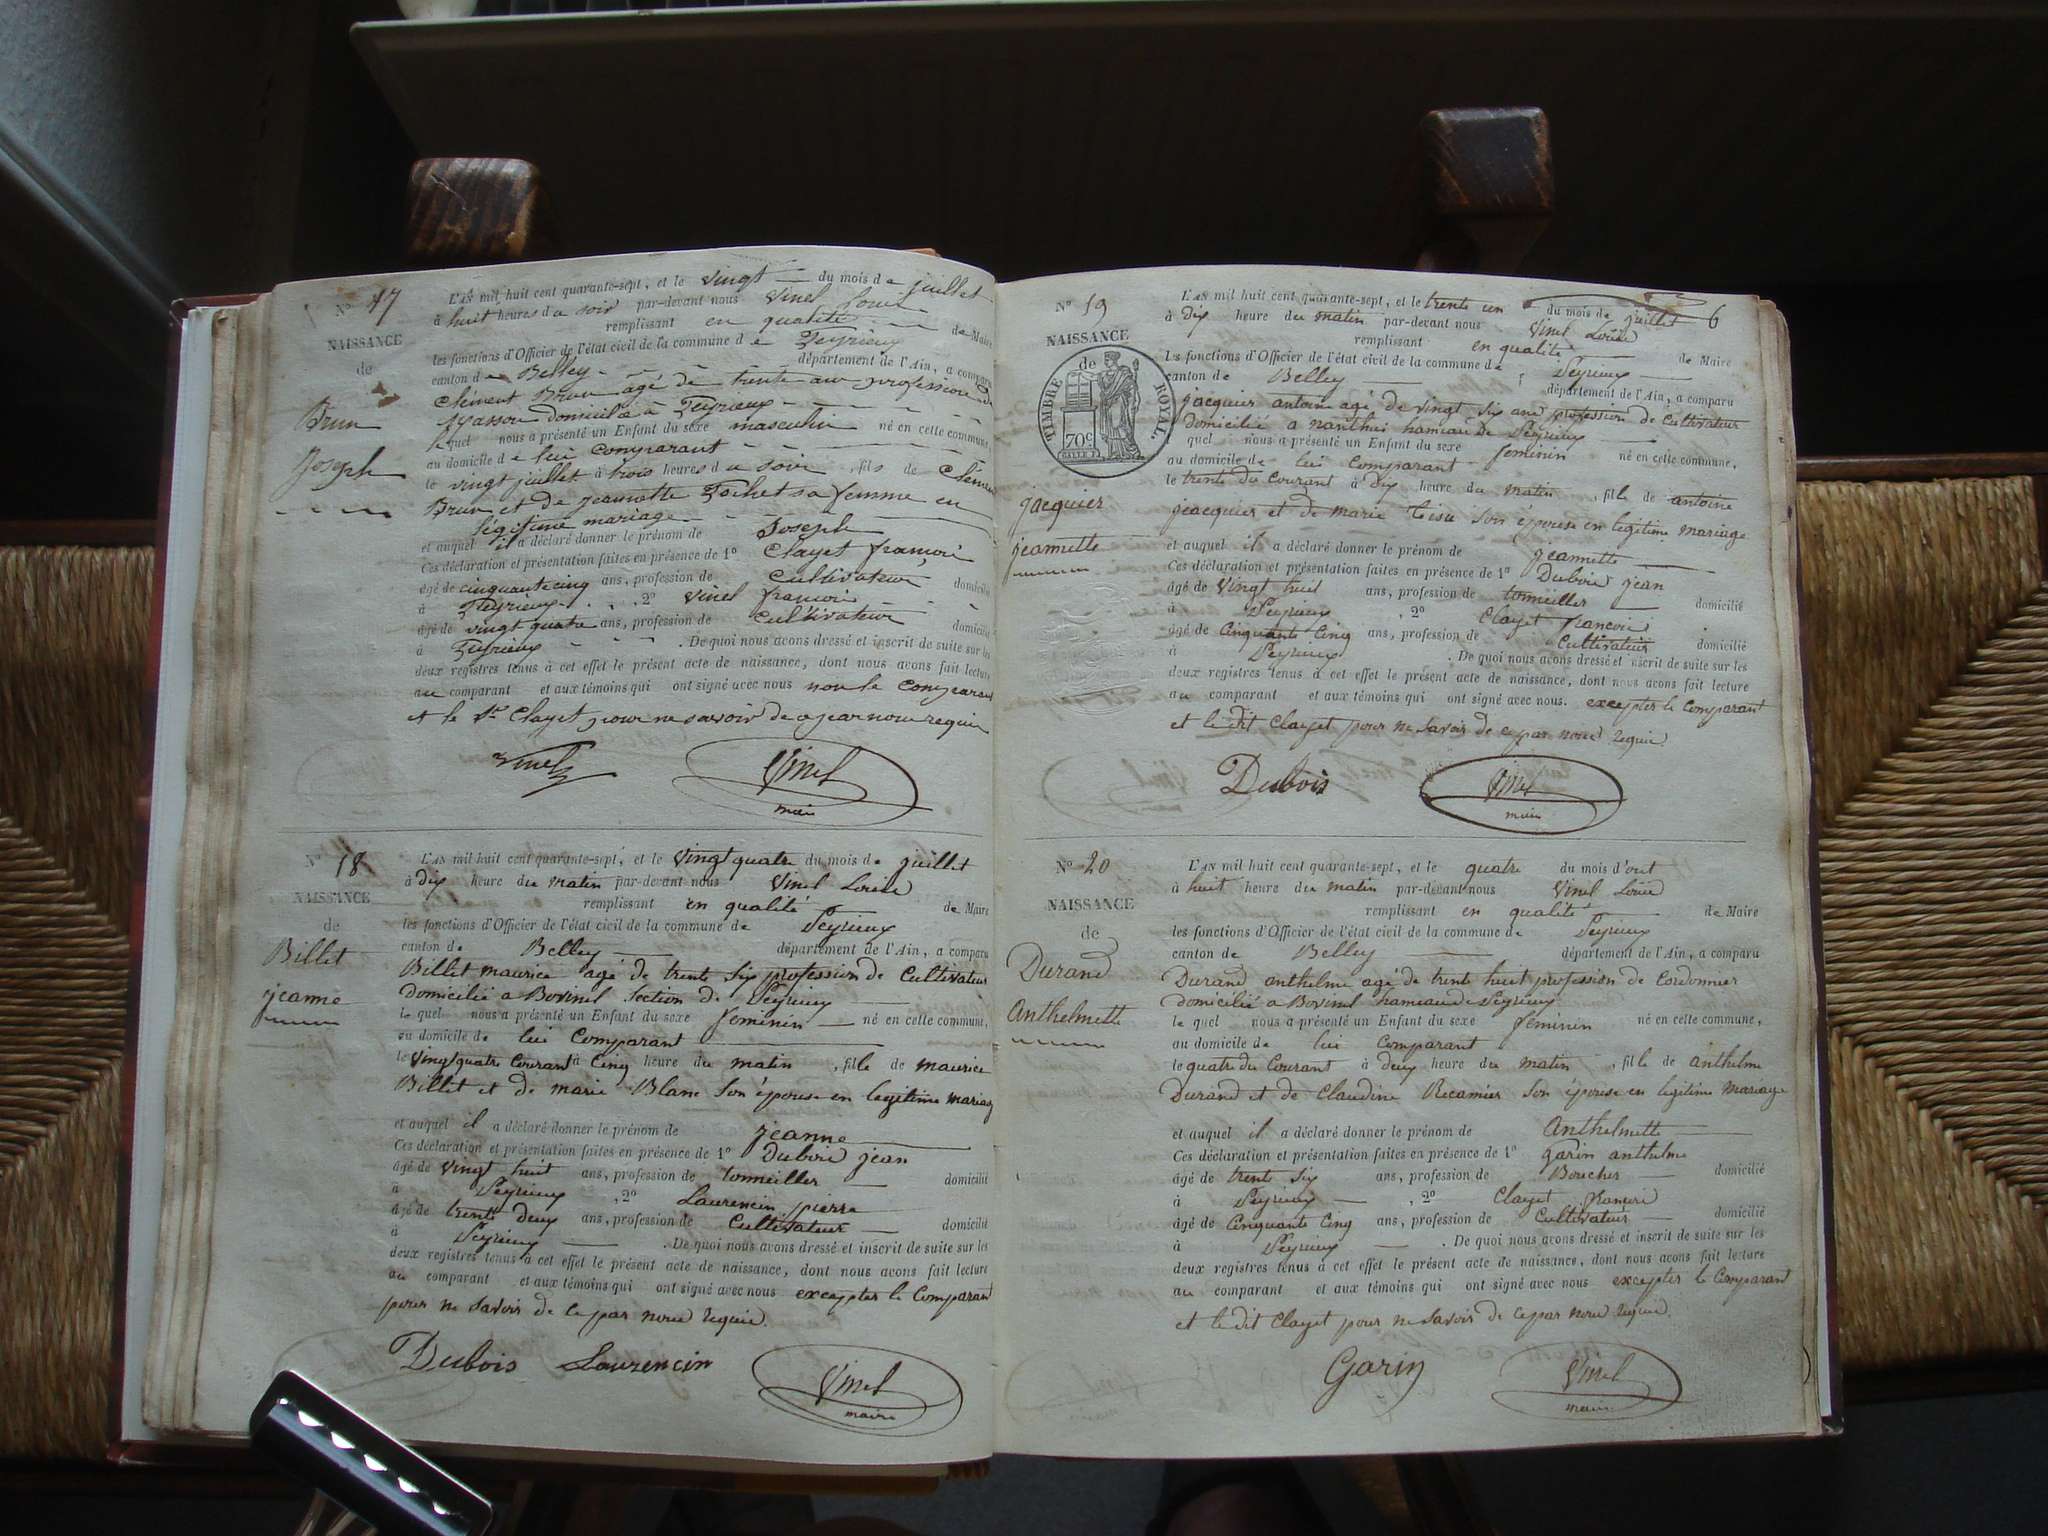 N° 17
NAISSANCE
de
Brun
Joseph
L'AN mil huit cent quarante-sept, et le vingt du mois de juillet
à huit heures du soir par-devant nous Vinel Louis
remplissant en qualité de Maire
les fonctions d'Officier de l'état civil de la commune de Peyrieux
canton de Belley département de l'Ain, a comparu
Clément Brun âgé de trente ans profession de
Masson domicilié à Peyrieux
lequel nous a présenté un Enfant du sexe masculin né en cette commune,
au domicile de lui comparant
le vingt juillet à trois heures du soir, fils de Clément
Brun et de jeannette Pochet sa femme en
légitime mariage
et auquel il a déclaré donner le prénom de Joseph
Ces déclaration et présentation faites en présence de 1° Clayet françois
âgé de cinquante cinq ans, profession de cultivateur domicilié
à Peyrieux 2° Vinel françois
âgé de vingt quatre ans, profession de cultivateur domicilié
à Peyrieux . De quoi nous avons dressé et inscrit de suite sur les
deux registres tenus à cet effet le présent acte de naissance, dont nous avons fait lecture
au comparant et aux témoins qui ont signé avec nous non le comparant
et le Sr Clayet pour ne savoir de ce par nous requis
Vinel Vinel
maire
N° 18
NAISSANCE
de
Billet
jeanne
L'AN mil huit cent quarante-sept, et le vingt quatre du mois de juillet
à dix heure du matin par-devant nous Vinel Louis
remplissant en qualité de Maire
les fonctions d'Officier de l'état civil de la commune de Peyrieux
canton de Belley département de l'Ain, a comparu
Billet maurice agé de trente six profession de Cultivateur
domicilié a Bovinel Section de Peyrieux
le quel nous a présenté un Enfant du sexe feminin né en cette commune,
au domicile de lui Comparant
le vingt quatre Courant à Cinq heure du matin, fille de maurice
Billet et de marie Blanc Son épouse en legitime mariag
et auquel il a déclaré donner le prénom de jeanne
Ces déclaration et présentation faites en présence de 1° Dubois jean
âgé de vingt huit ans, profession de tonneiller domicilié
à Peyrieux, 2° Laurencin pierre
âgé de trente deux ans, profession de Cultivateur domicilié
à Peyrieux . De quoi nous avons dressé et inscrit de suite sur les
deux registres tenus à cet effet le présent acte de naissance, dont nous avons fait lecture
au comparant et aux témoins qui ont signé avec nous excepter le Comparan
pour ne Savoir de ce par nous requis.
Dubois Laurencin Vinel
maire
6
N° 19
NAISSANCE
de
TIMBRE ROYAL.
70c
jacquier
jeannette
L'AN mil huit cent quarante-sept, et le trente un du mois de juillet
à dix heure du matin par-devant nous Vinel Louis
remplissant en qualité de Maire
les fonctions d'Officier de l'état civil de la commune de Peyrieux
canton de Belley département de l'Ain, a comparu
jacquier antoine agé de vingt six ans profession de Cultivateur
domicilié a nanthui hameau de Peyrieux
quel nous a présenté un Enfant du sexe feminin né en cette commune,
au domicile de lui Comparant
le trente du Courant à dix heure du matin, fille de antoine
jacquier et de marie Son épouse en legitime mariage
et auquel il a déclaré donner le prénom de jeannette
Ces déclaration et présentation faites en présence de 1° Dubois jean
âgé de vingt huit ans, profession de tonneiller domicilié
à Peyrieux, 2° Clayet francois
âgé de Cinquante Cinq ans, profession de Cultivateur domicilié
à Peyrieux . De quoi nous avons dressé et inscrit de suite sur les
deux registres tenus à cet effet le présent acte de naissance, dont nous avons fait lecture
au comparant et aux témoins qui ont signé avec nous. excepter le Comparant
et le dit Clayet pour ne Savoir de ce par nous requis
Dubois Vinel
maire
N° 20
NAISSANCE
de
Durand
Anthelmette
L'AN mil huit cent quarante-sept, et le quatre du mois d'out
à huit heure du matin par-devant nous Vinel Louis
remplissant en qualité de Maire
les fonctions d'Officier de l'état civil de la commune de Peyrieux
canton de Belley département de l'Ain, a comparu
Durand anthelme agé de trente huit profession de Cordonnier
domicilié a Bovinel hameau de Peyrieux
le quel nous a présenté un Enfant du sexe féminin né en cette commune,
au domicile de lui Comparant
le quatre du Courant à deux heure du matin, fille de anthelme
Durand et de Claudine Recamier Son épouse en legitime mariage
et auquel il a déclaré donner le prénom de Anthelmette
Ces déclaration et présentation faites en présence de 1° Garin anthelme
âgé de trente six ans, profession de Boucher domicilié
à Peyrieux, 2° Clayet francois
âgé de Cinquante Cinq ans, profession de Cultivateur domicilié
à Peyrieux . De quoi nous avons dressé et inscrit de suite sur les
deux registres tenus à cet effet le présent acte de naissance, dont nous avons fait lecture
au comparant et aux témoins qui ont signé avec nous excepter le Comparant
et le dit Clayet pour ne Savoir de ce par nous requis.
Garin Vinel
maire